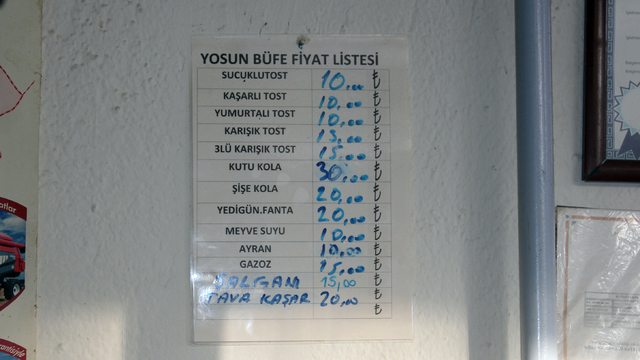 YOSUN BÜFE FİYAT LİSTESİ
SUCUKLUTOST 10,00 ₺
KAŞARLI TOST 10,00 ₺
YUMURTALI TOST 10,00 ₺
KARIŞIK TOST 13,00 ₺
3LÜ KARIŞIK TOST 15,00 ₺
KUTU KOLA 30,00 ₺
ŞİŞE KOLA 20,00 ₺
YEDİGÜN.FANTA 20,00 ₺
MEYVE SUYU 10,00 ₺
AYRAN 10,00 ₺
GAZOZ 15,00 ₺
ŞALGAM 15,00 ₺
TAVA KAŞAR 20,00 ₺
₺